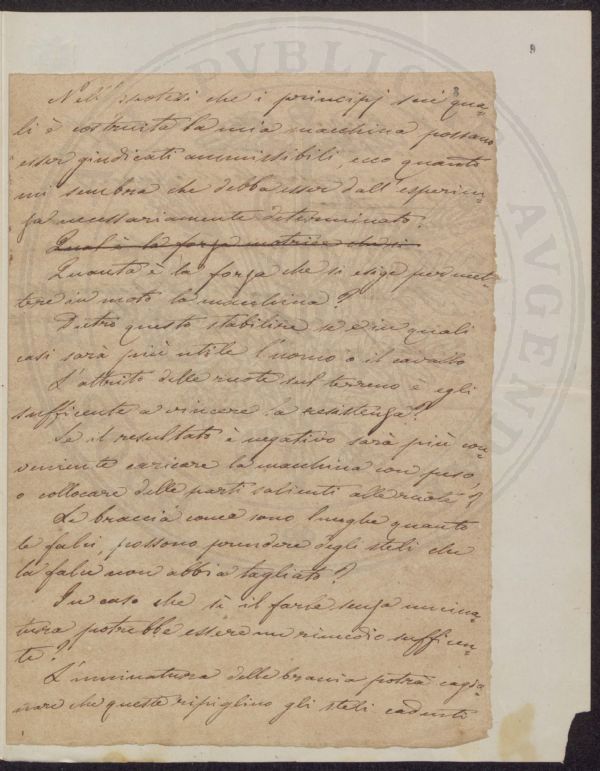 8
8
Nell'ipotesi che i principj sui qua-
li è costruita la mia macchina possano
esser giudicati ammissibili, ecco quanto
mi sembra che debba esser dall'esperien-
za necessariamente determinato.
Qual è la forza motrice che si
Quanta è la forza che si esige per met-
tere in moto la macchina?
Dietro questo stabilire se e in quali
casi sarà più utile l'uomo o il cavallo
L'attrito delle ruote sul terreno è egli
sufficente a vincere la resistenza?
Se il resultato è negativo sarà più con-
veniente caricare la macchina con peso,
o collocare delle parti salienti alle ruote?
Le braccia come sono lunghe quanto
le falci, possono prendere degli steli che
la falce non abbia tagliato?
In caso che sì il farle senza uncina-
tura potrebbe essere un rimedio sufficen-
te?
L'uncinatura delle braccia potrà cagio-
nare che queste ripiglino gli steli caduti
PVBLIC
AVGEND